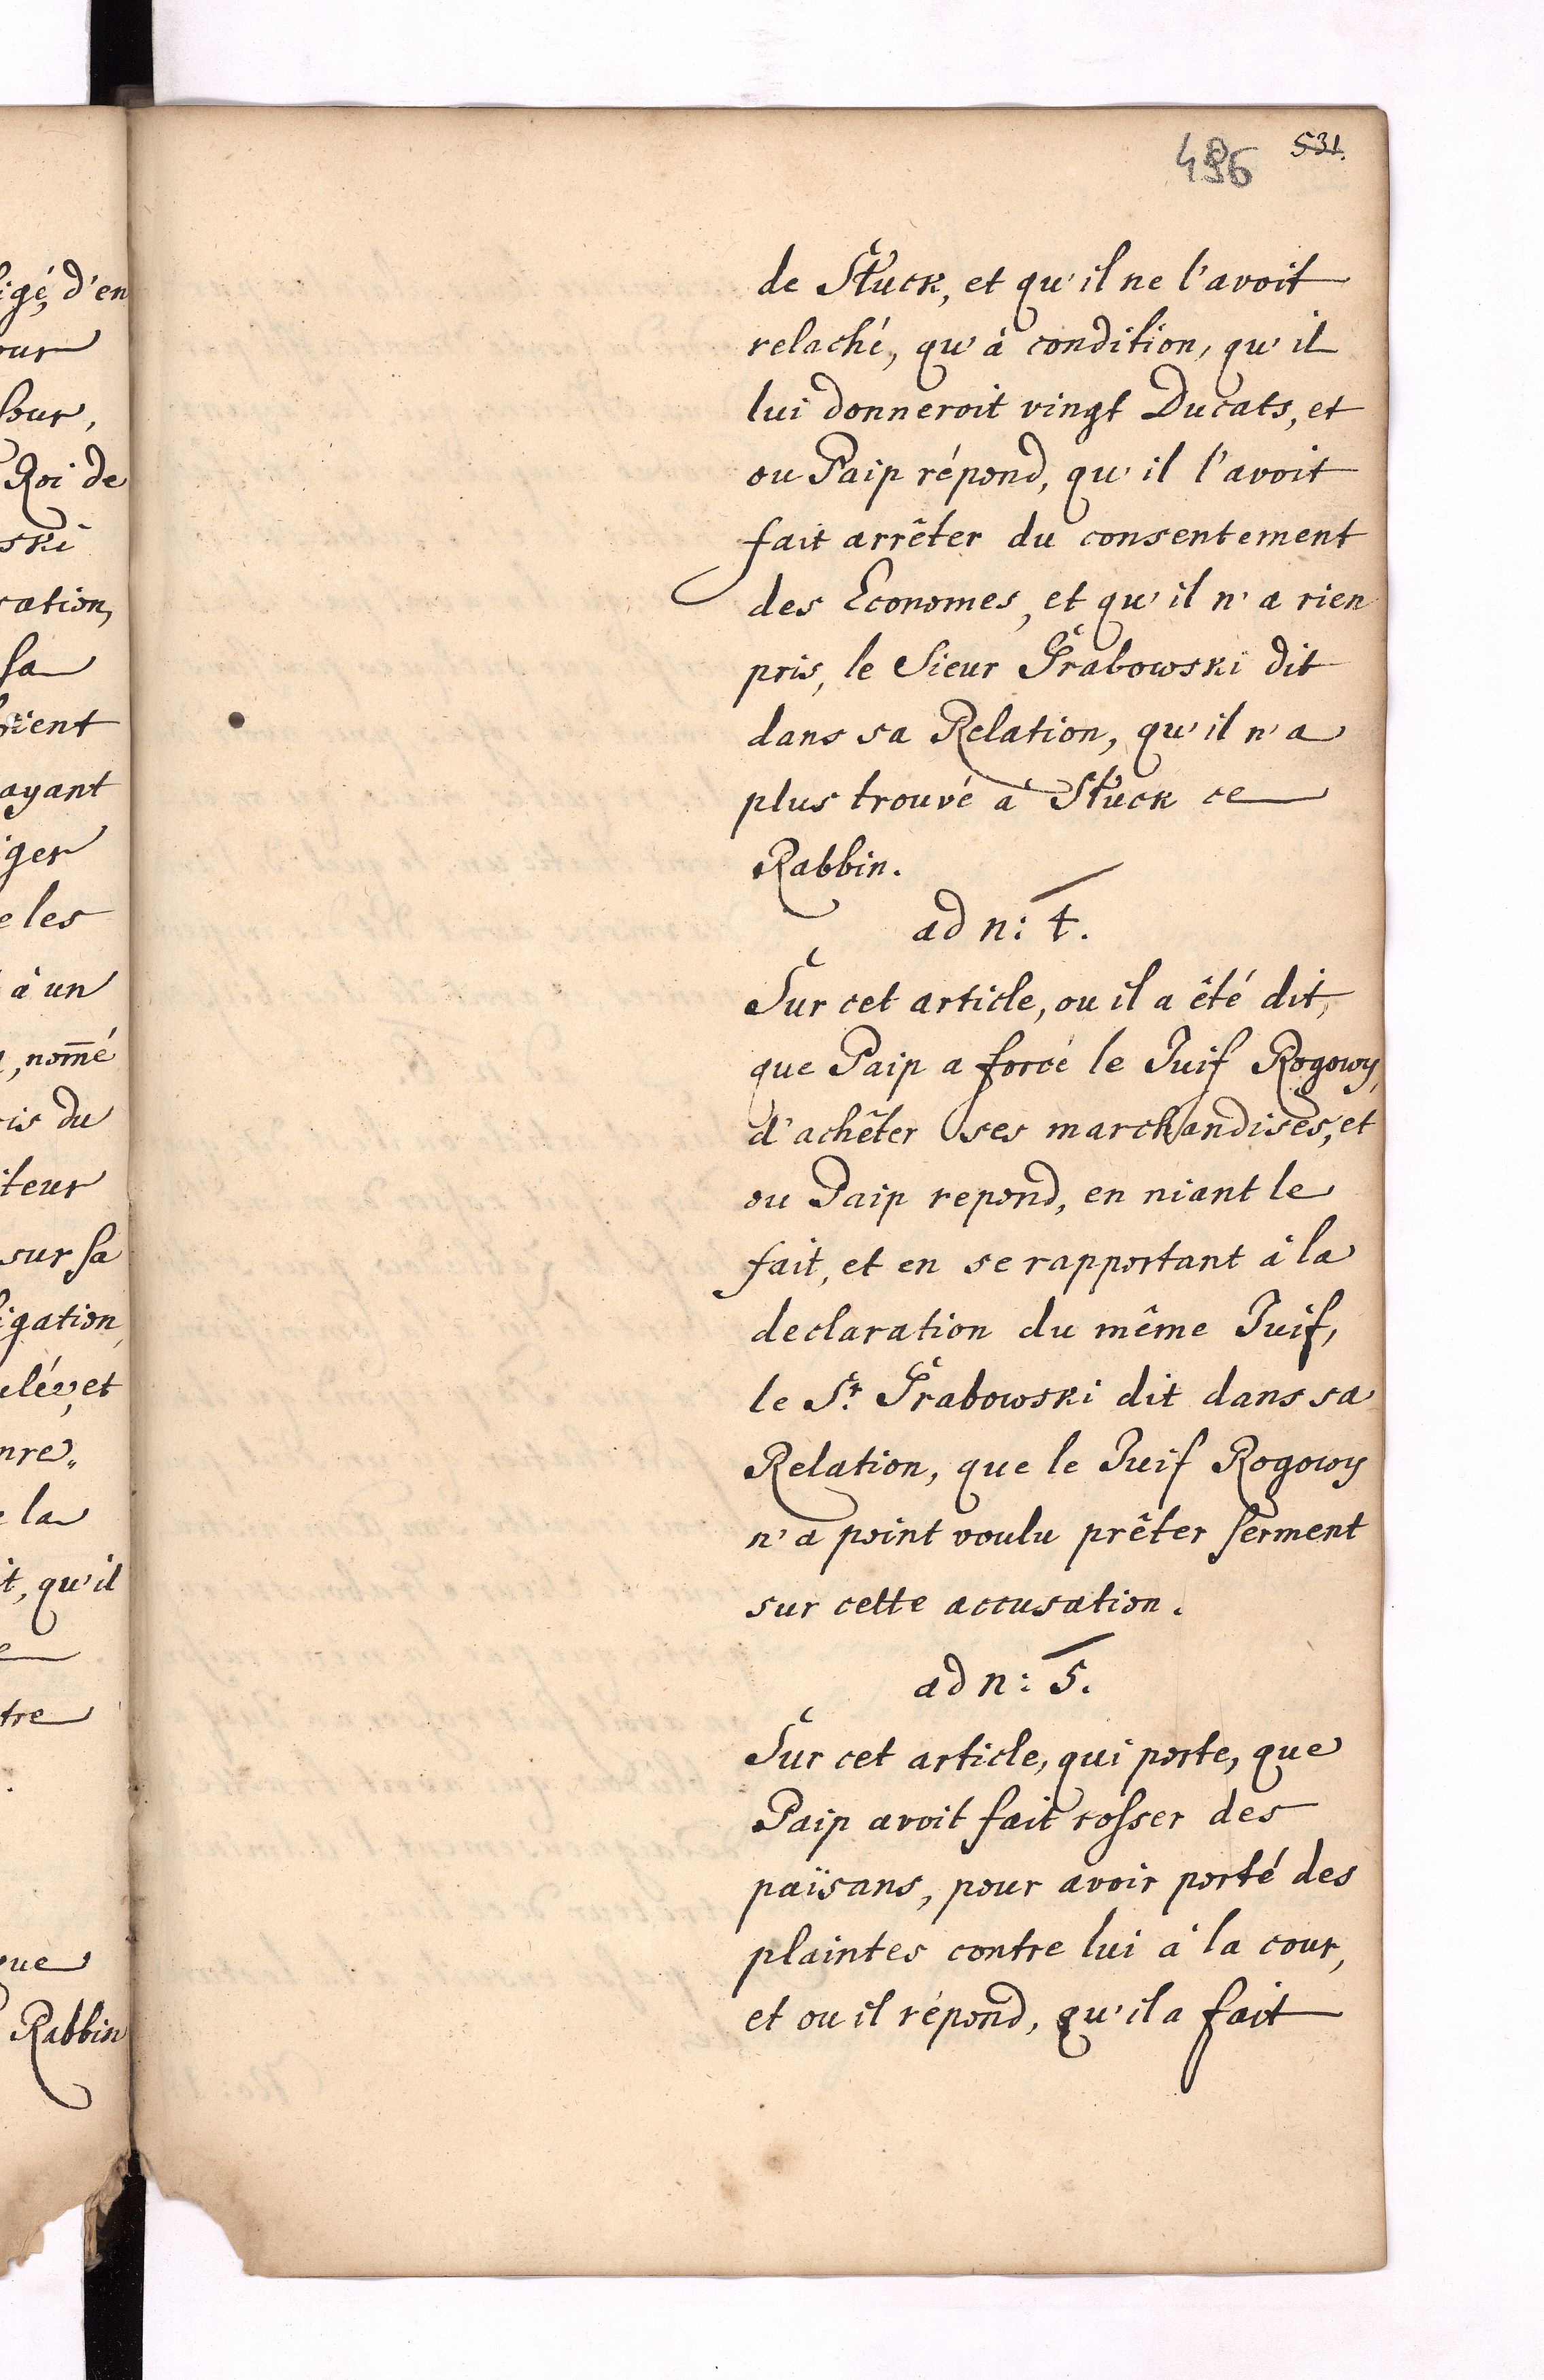 496 531.
de Słuck, et qu'il ne l'avoit
relaché, qu'à condition, qu'il
lui donneroit vingt Ducats, et
ou Paip répond, qu'il l'avoit
fait arrêter du consentement
des Economes, et qu'il n'a rien
pris, le Sieur Grabowski dit
dans sa Relation, qu'il n'a
plus trouvé à Słuck ce
Rabbin.
ad n: 4.
Sur cet article, ou il a êté dit,
que Paip a forcé le Juif Rogowy,
d'achêter ses marchandises, et
ou Paip repond, en niant le
fait, et en se rapportant à la
declaration du même Juif,
le Sr. Grabowski dit dans sa
Relation, que le Juif Rogowy
n'a point voulu prêter serment
sur cette accusation.
ad n: 5.
Sur cet article, qui porte, que
Paip avoit fait rosser des
païsans, pour avoir porté des
plaintes contre lui à la cour,
et ou il répond, qu'il a fait
igé, d'en
our
sour,
Roi de
ski
cation,
sa
oient
ayant
iger
e les
à un
, nom̄é
is du
iteur
sur sa
igation,
ulév, et
nre„
la
it, qu'il
e
tre
que
Rabbin